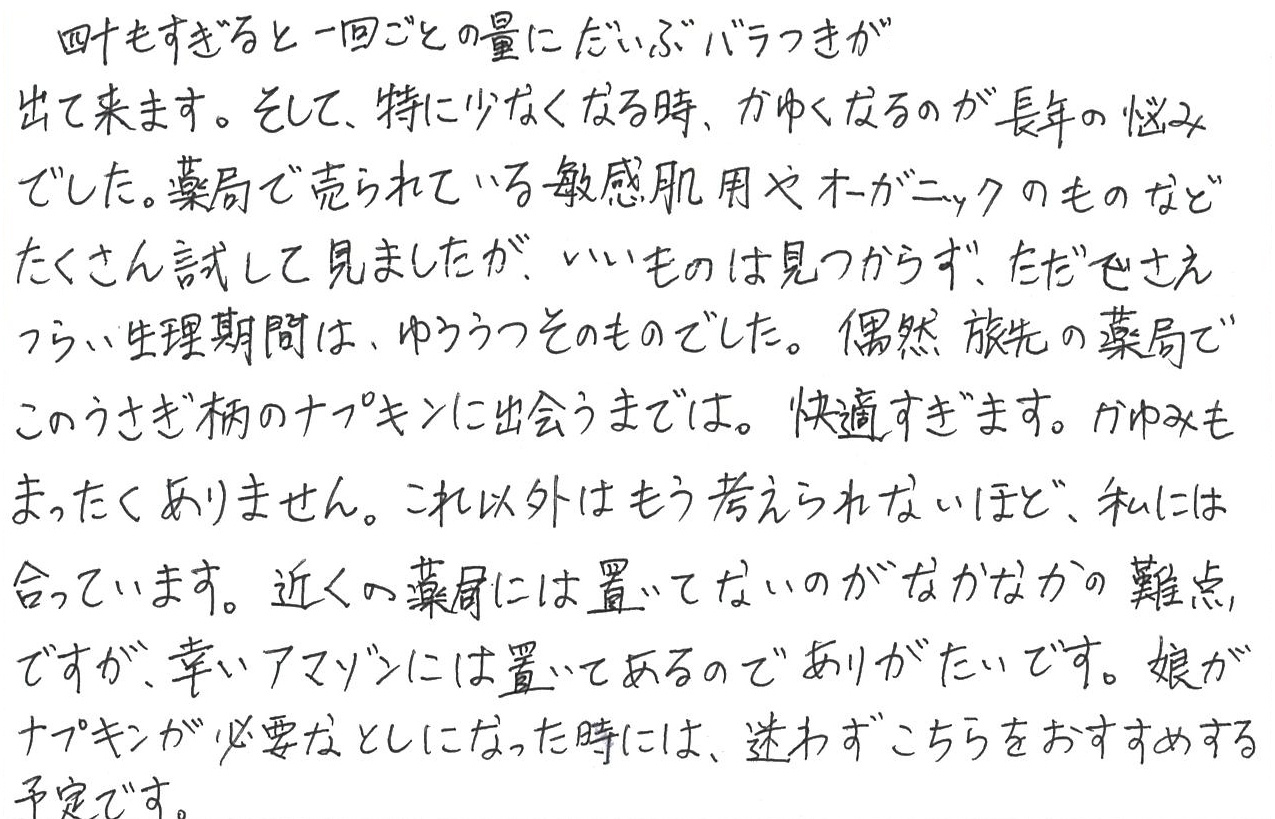 四十もすぎると一回ごとの量にだいぶバラつきが
出て来ます。そして、特に少なくなる時、かゆくなるのが長年の悩み
でした。薬局で売られている敏感肌用やオーガニックのものなど
たくさん試して見ましたが、いいものは見つからず、ただでさえ
つらい生理期間は、ゆううつそのものでした。偶然旅先の薬局で
このうさぎ柄のナプキンに出会うまでは。快適すぎます。かゆみも
まったくありません。これ以外はもう考えられないほど、私には
合っています。近くの薬局には置いてないのがなかなかの難点
ですが、幸いアマゾンには置いてあるのでありがたいです。娘が
ナプキンが必要なとしになった時には、迷わずこちらをおすすめする
予定です。